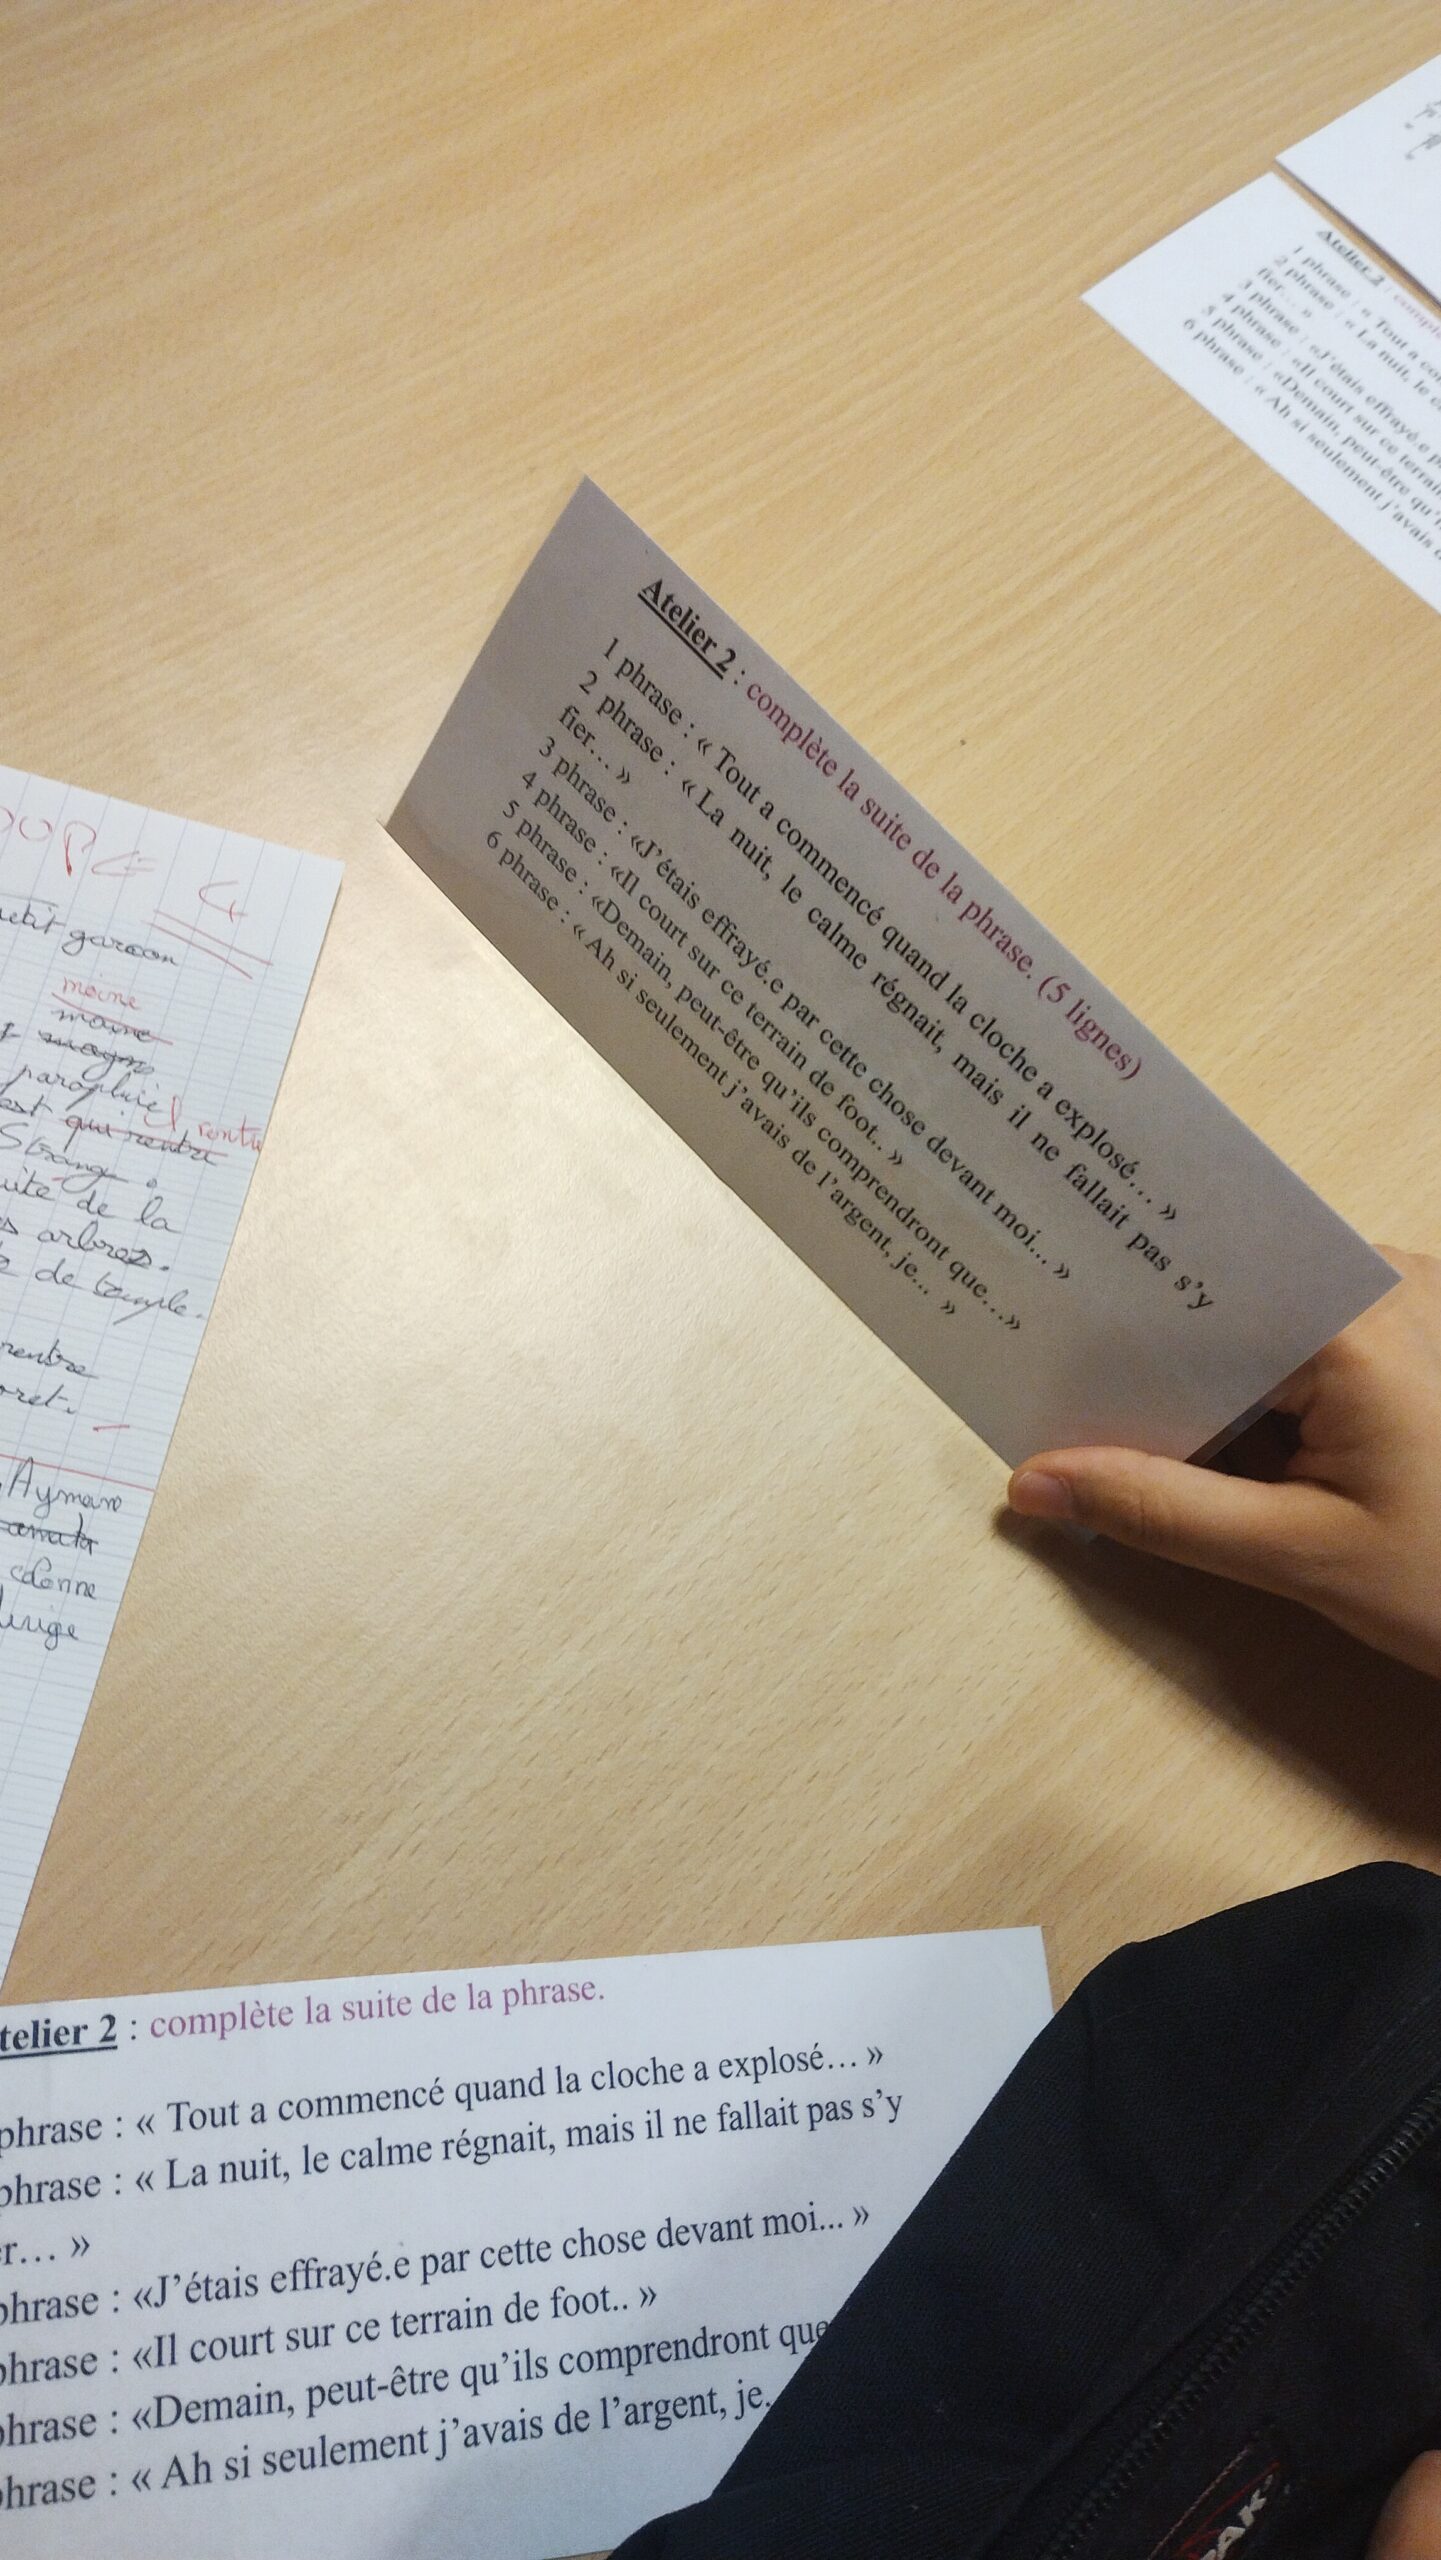 Atelier 2 : complète la suite de la phrase. (5 lignes)
1 phrase : « Tout a commencé quand la cloche a explosé… »
2 phrase : « La nuit, le calme régnait, mais il ne fallait pas s’y
fier… »
3 phrase : «J’étais effrayé.e par cette chose devant moi... »
4 phrase : «Il court sur ce terrain de foot.. »
5 phrase : «Demain, peut-être qu’ils comprendront que…»
6 phrase : « Ah si seulement j’avais de l’argent, je... »
Atelier 2 : complè
1 phrase : « Tout a co
2 phrase : « La nuit, le c
fier… »
3 phrase : «J’étais effrayé.e p
4 phrase : «Il court sur ce terrain
5 phrase : «Demain, peut-être qu’i
6 phrase : « Ah si seulement j’avais d
4
garcon
moine
moine
parapluie rentre
est qui rentre
Strang.
de la
arbres.
de temple.
rentre
Aymane
donne
telier 2 : complète la suite de la phrase.
phrase : « Tout a commencé quand la cloche a explosé… »
phrase : « La nuit, le calme régnait, mais il ne fallait pas s’y
r… »
phrase : «J’étais effrayé.e par cette chose devant moi... »
phrase : «Il court sur ce terrain de foot.. »
phrase : «Demain, peut-être qu’ils comprendront que
phrase : « Ah si seulement j’avais de l’argent, je.